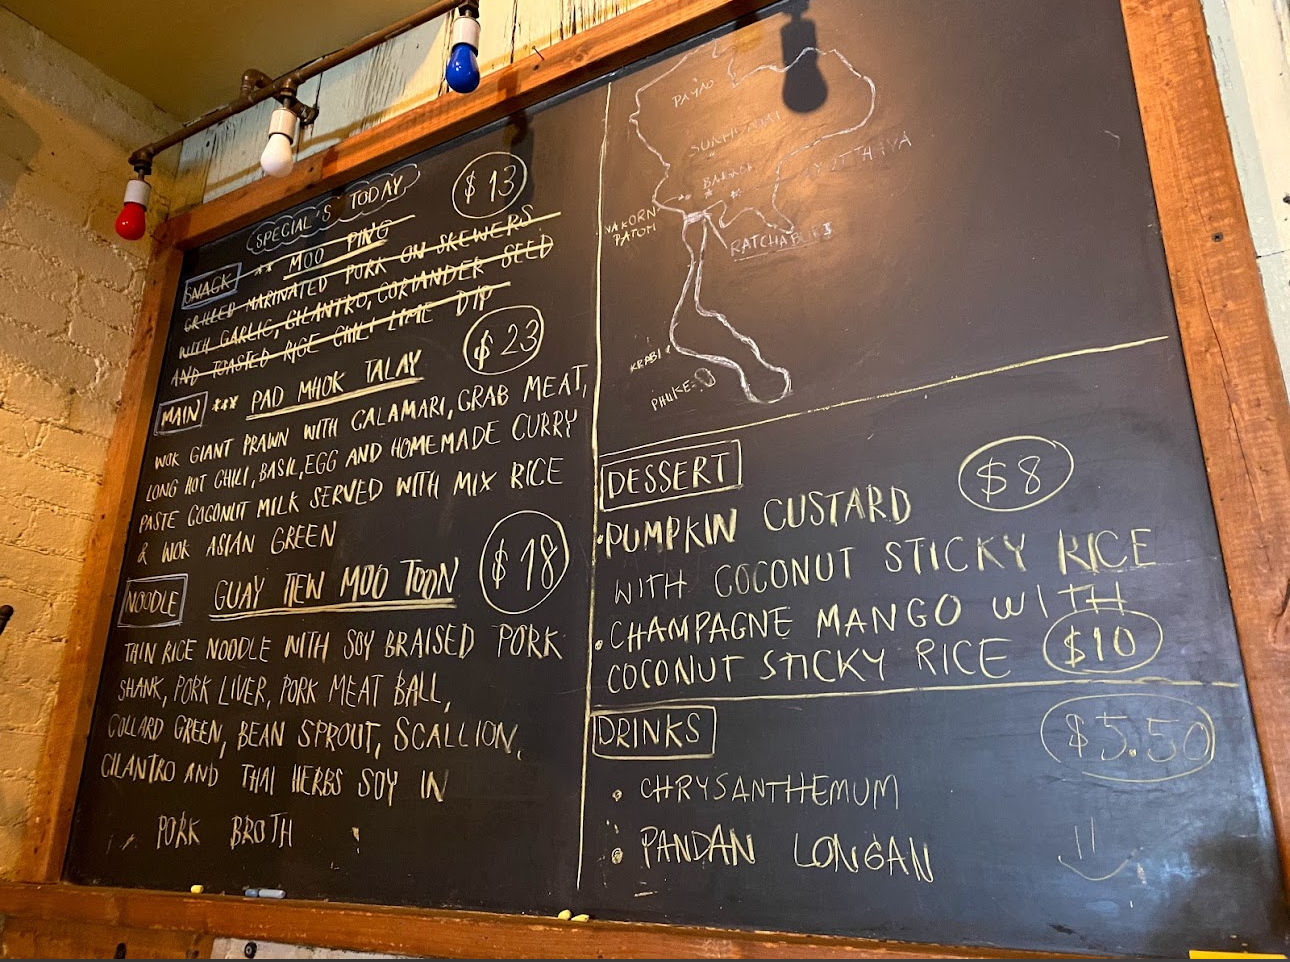 SPECIAL'S TODAY
$13
SNACK ** MOO PING
GRILLED MARINATED PORK ON SKEWERS
WITH GARLIC, CILANTRO, CORIANDER SEED
AND TOASTED RICE CHILI LIME DIP
$23
MAIN *** PAD MHOK TALAY
WOK GIANT PRAWN WITH CALAMARI, CRAB MEAT,
LONG HOT CHILI, BASIL, EGG AND HOMEMADE CURRY
PASTE COCONUT MILK SERVED WITH MIX RICE
& WOK ASIAN GREEN
NOODLE GUAY TIEW MOO TOON $18
THIN RICE NOODLE WITH SOY BRAISED PORK
SHANK, PORK LIVER, PORK MEAT BALL,
COLLARD GREEN, BEAN SPROUT, SCALLION,
CILANTRO AND THAI HERBS SOY IN
PORK BROTH
PAYAO
AYUTTAYA
NAKORN
PATOM
KRABI
DESSERT
$8
•PUMPKIN CUSTARD
WITH COCONUT STICKY RICE
•CHAMPAGNE MANGO WITH
COCONUT STICKY RICE $10
DRINKS $5.50
• CHRYSANTHEMUM
• PANDAN LONGAN